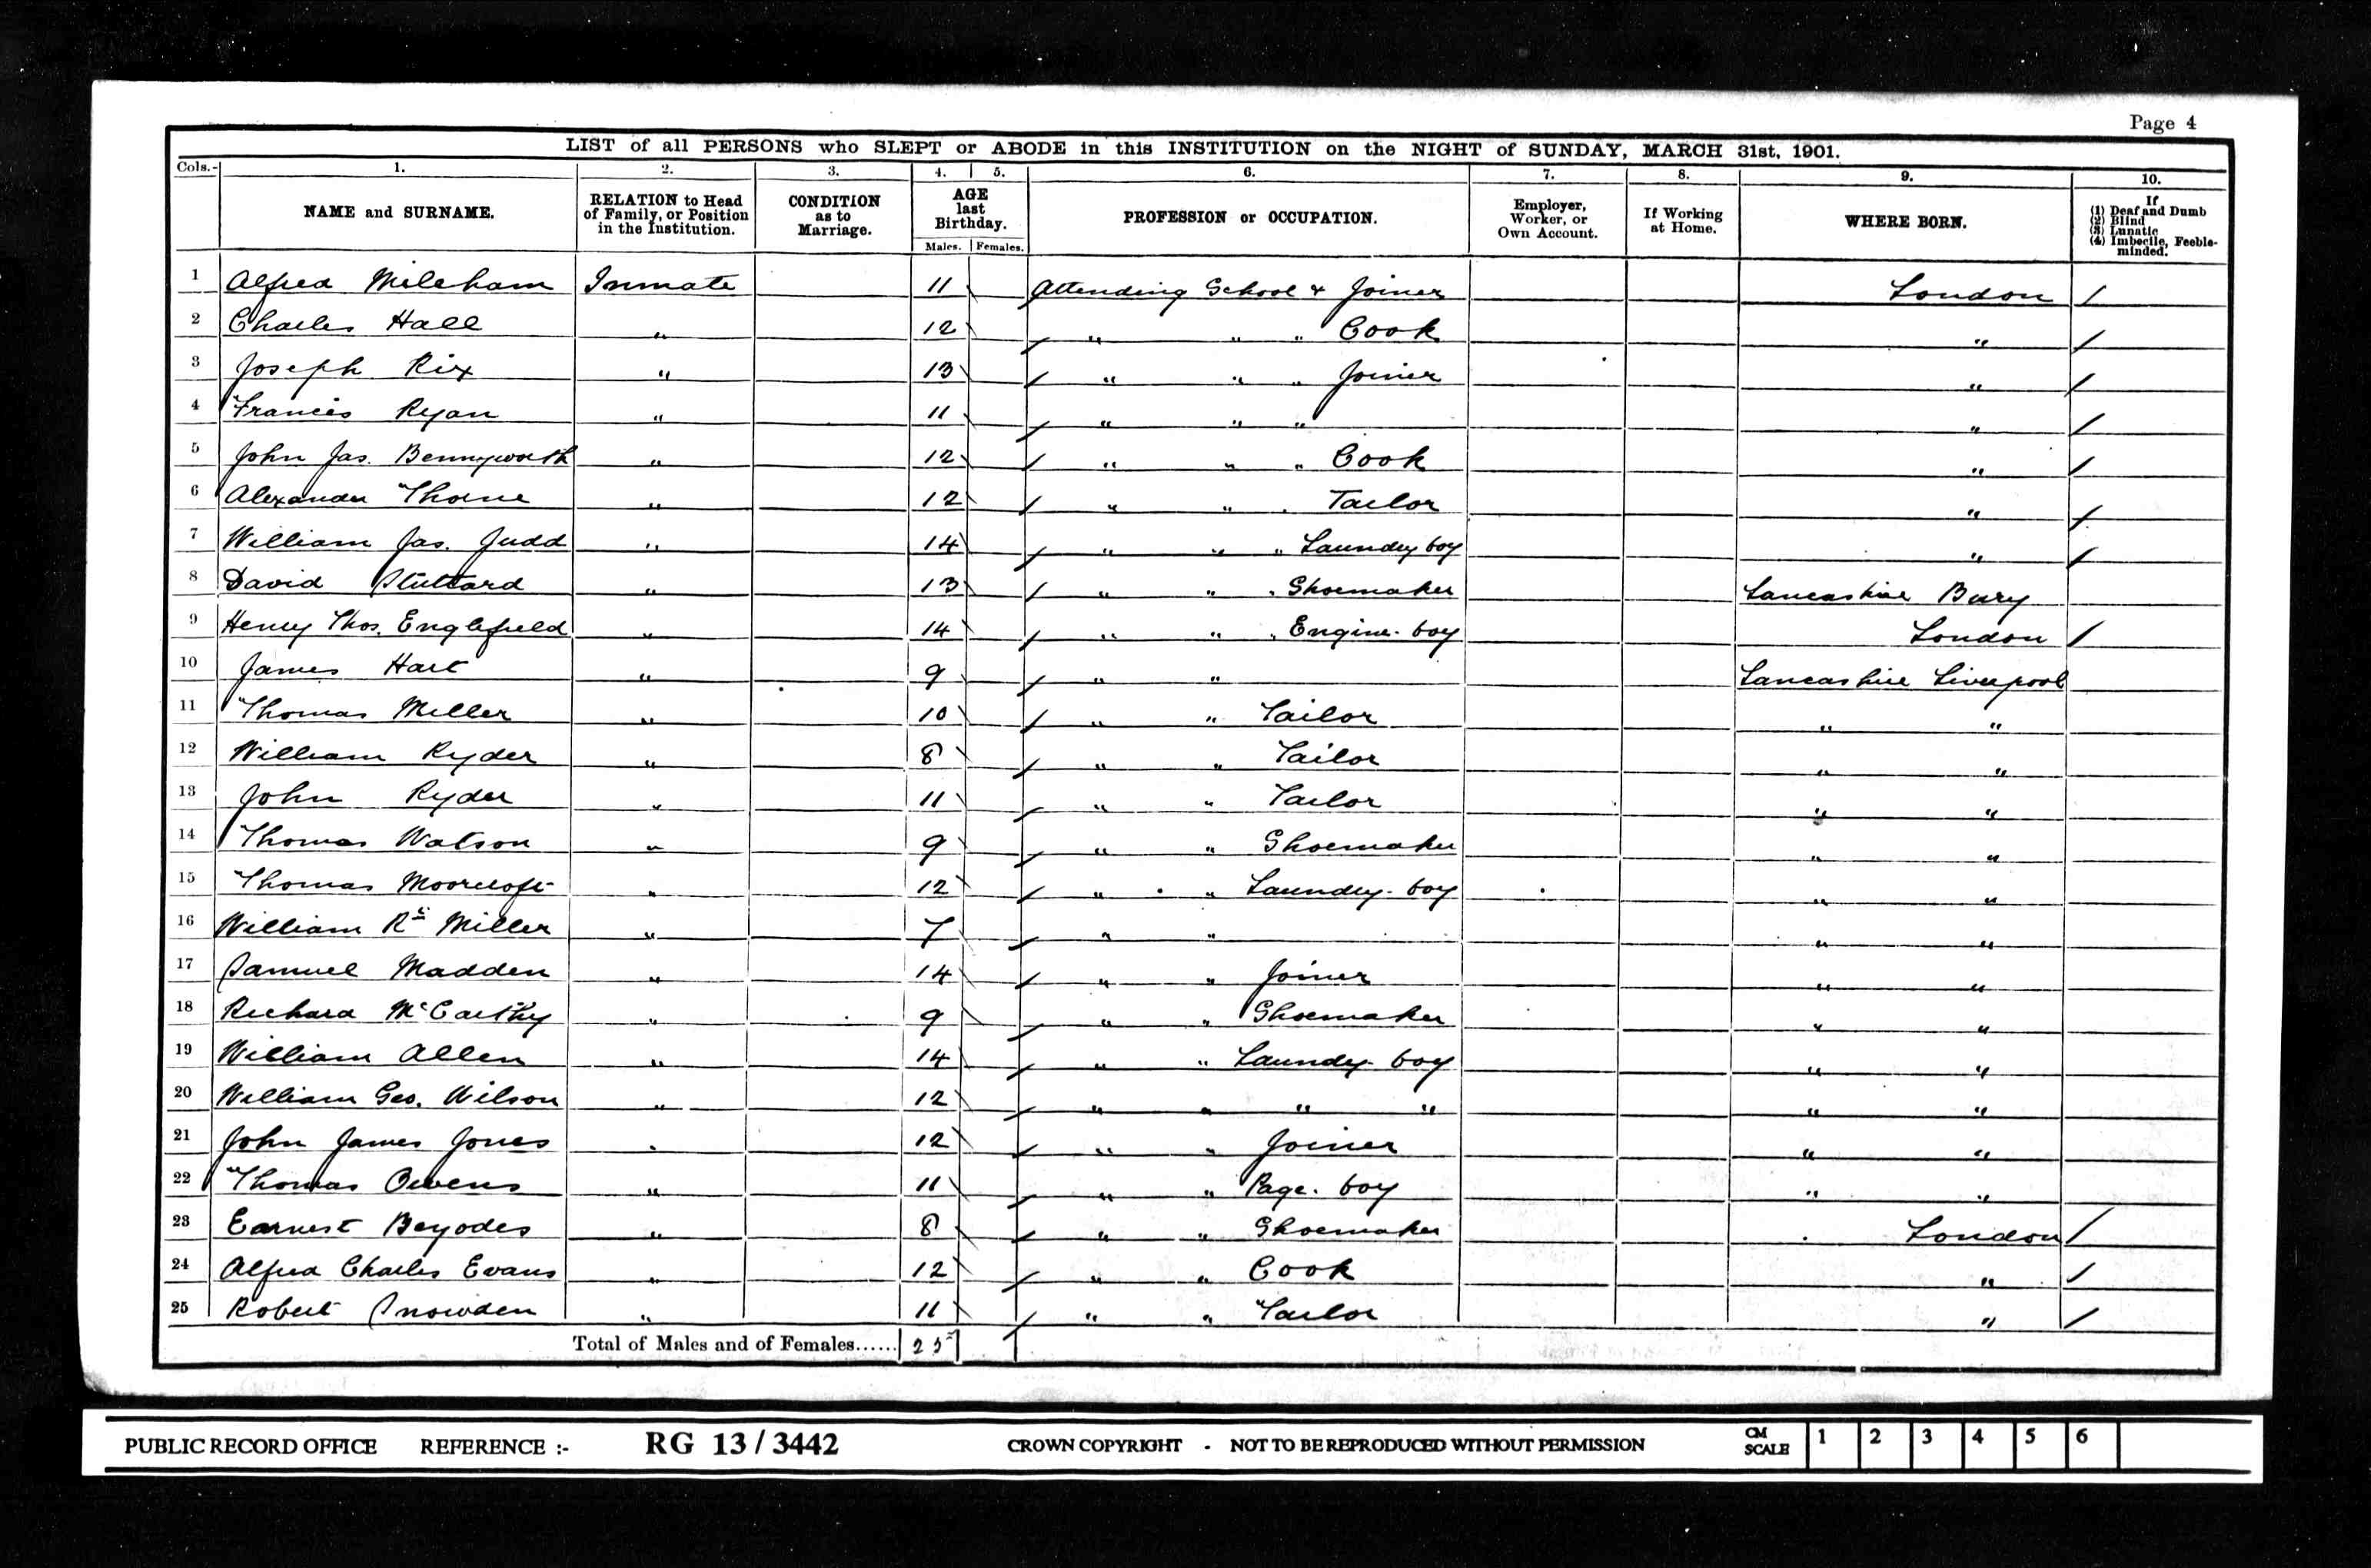 Page 4
LIST of all PERSONS who SLEPT or ABODE in this INSTITUTION on the NIGHT of SUNDAY, MARCH 31st, 1901.
Cols.- 1. 2. 3. 4. 5. 6. 7. 8. 9. 10.
NAME and SURNAME. RELATION to Head of Family, or Position in the Institution. CONDITION as to Marriage. AGE last Birthday. Males. Females. PROFESSION or OCCUPATION. Employer, Worker, or Own Account. If Working at Home. WHERE BORN. If (1) Deaf and Dumb (2) Blind (3) Lunatic (4) Imbecile, Feeble-minded.
1 Alfred Mileham Inmate 11 Attending School & Joiner London /
2 Charles Hall " 12 " " " Cook " /
3 Joseph Rix " 13 " " " Joiner " /
4 Francis Ryan " 11 " " " " /
5 John Jas. Bennyworth " 12 " " " Cook " /
6 Alexander Thorne " 12 " " " Tailor " /
7 William Jas. Judd " 14 " " " Laundry boy " /
8 David Stuttard " 13 " " " Shoemaker Lancashire Bury
9 Henry Thos. Englefield " 14 " " " Engine-boy London /
10 James Hart " 9 " " Lancashire Liverpool
11 Thomas Miller " 10 " " Tailor " "
12 William Ryder " 8 " " Tailor " "
13 John Ryder " 11 " " Tailor " "
14 Thomas Watson " 9 " " Shoemaker " "
15 Thomas Moorcroft " 12 " " Laundry-boy " "
16 William Miller " 7 " " " "
17 Samuel Madden " 14 " " Joiner " "
18 Richard McCarthy " 9 " " Shoemaker " "
19 William Allen " 14 " " Laundry-boy " "
20 William Geo. Wilson " 12 " " " " " "
21 John James Jones " 12 " " Joiner " "
22 Thomas Owens " 11 " " Page-boy " "
23 Earnest Beyodes " 8 " " Shoemaker London /
24 Alfred Charles Evans " 12 " " Cook " /
25 Robert Snowden " 11 " " Tailor " /
Total of Males and of Females...... 25
PUBLIC RECORD OFFICE REFERENCE :- RG 13 / 3442 CROWN COPYRIGHT - NOT TO BE REPRODUCED WITHOUT PERMISSION CM SCALE 1 2 3 4 5 6